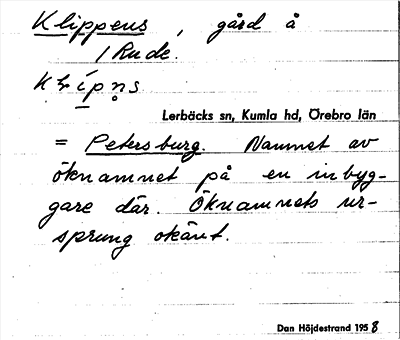 Klippens, gård å
/ Rude.
Lerbäcks sn, Kumla hd, Örebro län
= Petersburg. Namnet av
öknamnet på en inbyg-
gare där. Öknamnets ur-
sprung okänt.
Dan Höjdestrand 1958